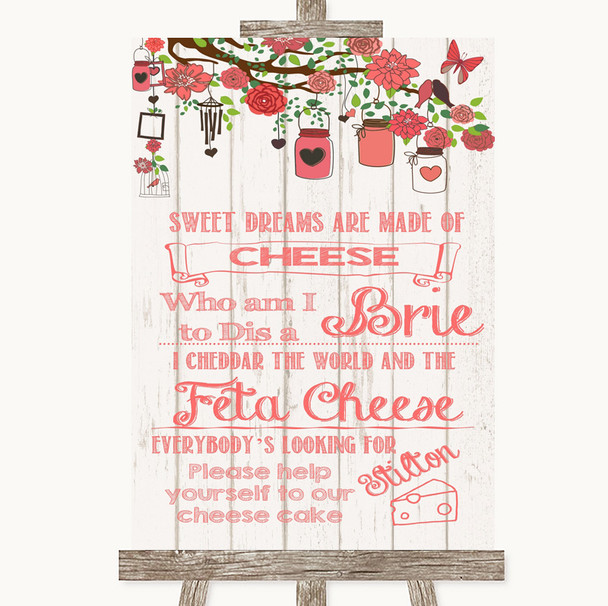 SWEET DREAMS ARE MADE OF
CHEESE
Who am I
to Dis a
Brie
I CHEDDAR THE WORLD AND THE
Feta Cheese
EVERYBODY'S LOOKING FOR
Stilton
Please help
yourself to our
cheese cake